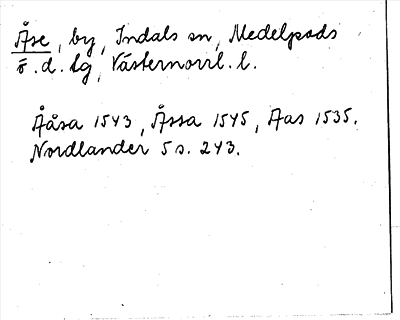 Åse, by, Indals sn, Medelpads
ö.d. tg, Västernorrl. l.
Ååsa 1543, Åssa 1545, Aas 1535.
Nordlander 5 s. 243.